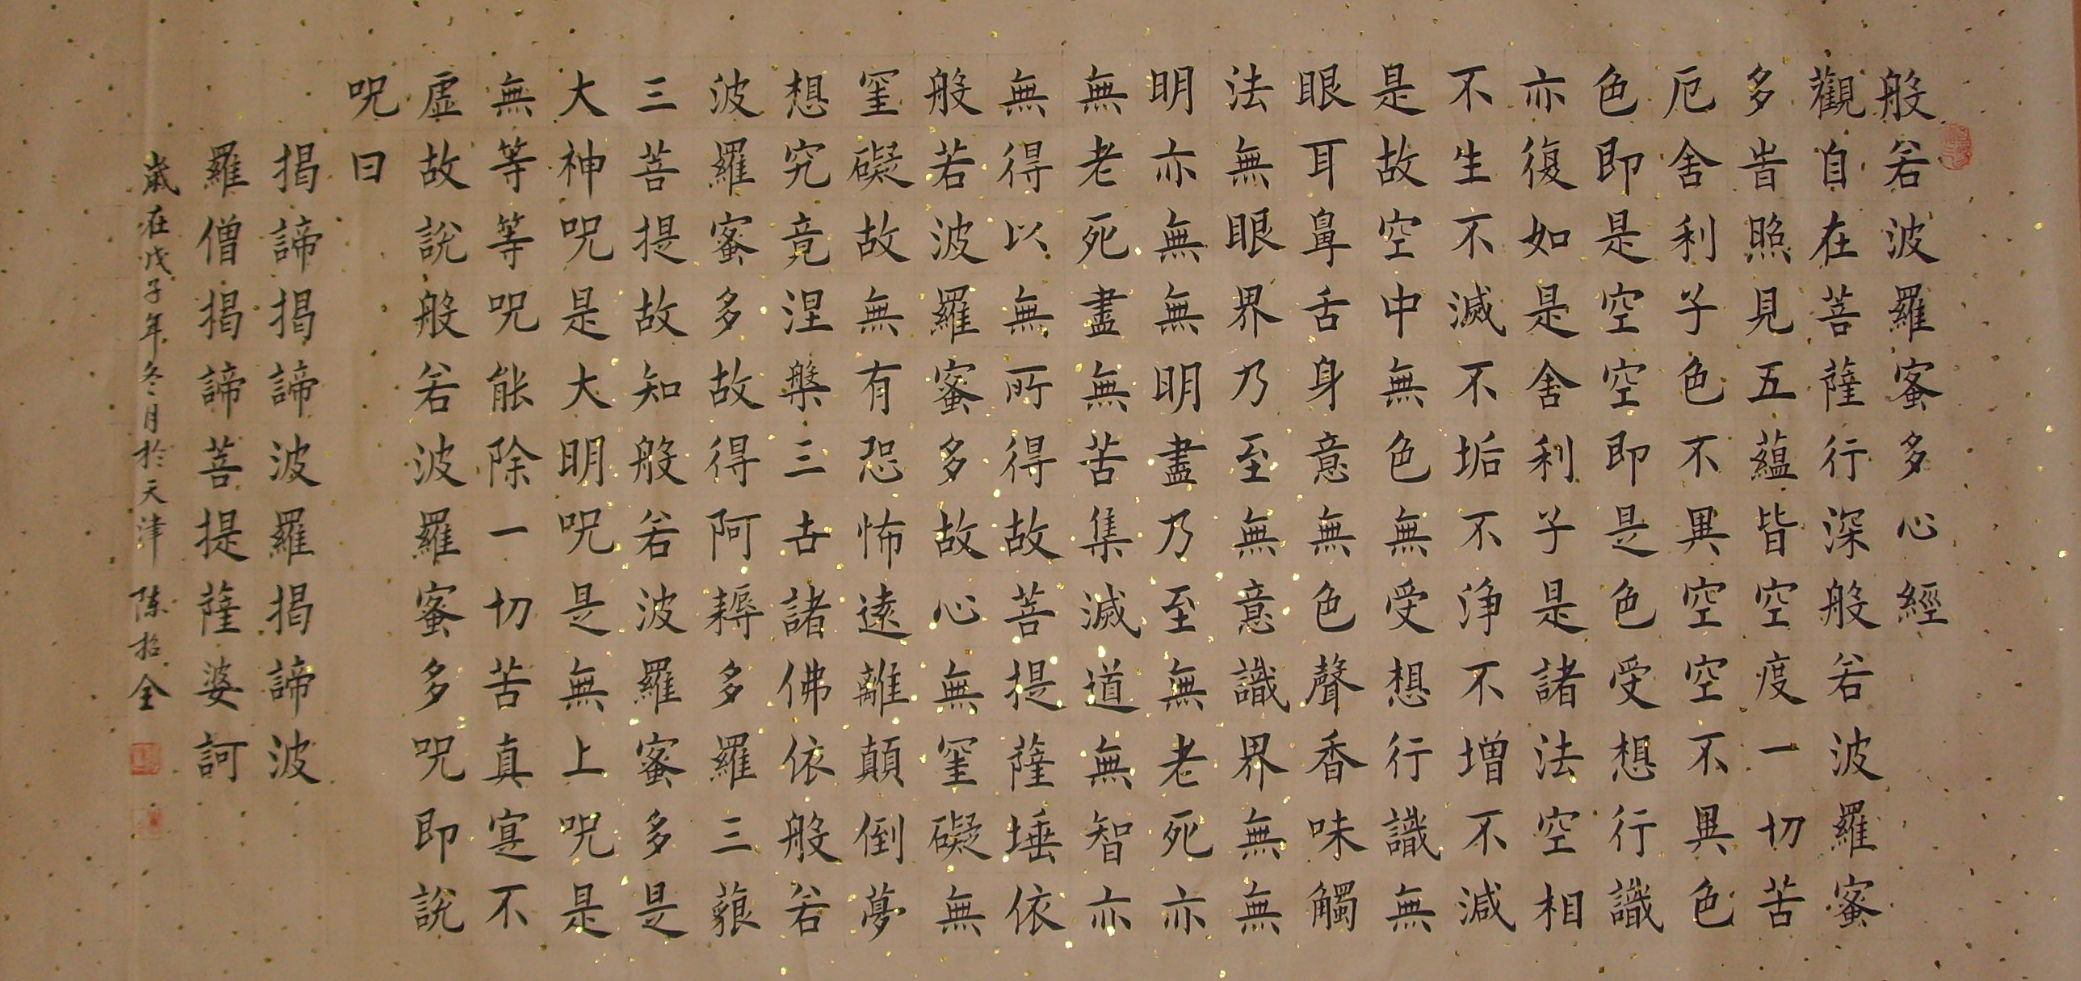 般若波羅蜜多心經
觀自在菩薩行深般若波羅蜜
多旹照見五蘊皆空度一切苦
厄舍利子色不異空空不異色
色即是空空即是色受想行識
亦復如是舍利子是諸法空相
不生不滅不垢不淨不增不減
是故空中無色無受想行識無
眼耳鼻舌身意無色聲香味觸
法無眼界乃至無意識界無無
明亦無無明盡乃至無老死亦
無老死盡無苦集滅道無智亦
無得以無所得故菩提薩埵依
般若波羅蜜多故心無罣礙無
罣礙故無有恐怖遠離顛倒夢
想究竟涅槃三世諸佛依般若
波羅蜜多故得阿耨多羅三藐
三菩提故知般若波羅蜜多是
大神呪是大明呪是無上呪是
無等等呪能除一切苦真寔不
虛故說般若波羅蜜多呪即說
呪曰
揭諦揭諦波羅揭諦波
羅僧揭諦菩提薩婆訶
歲在戊子年冬月於天津 陳招全